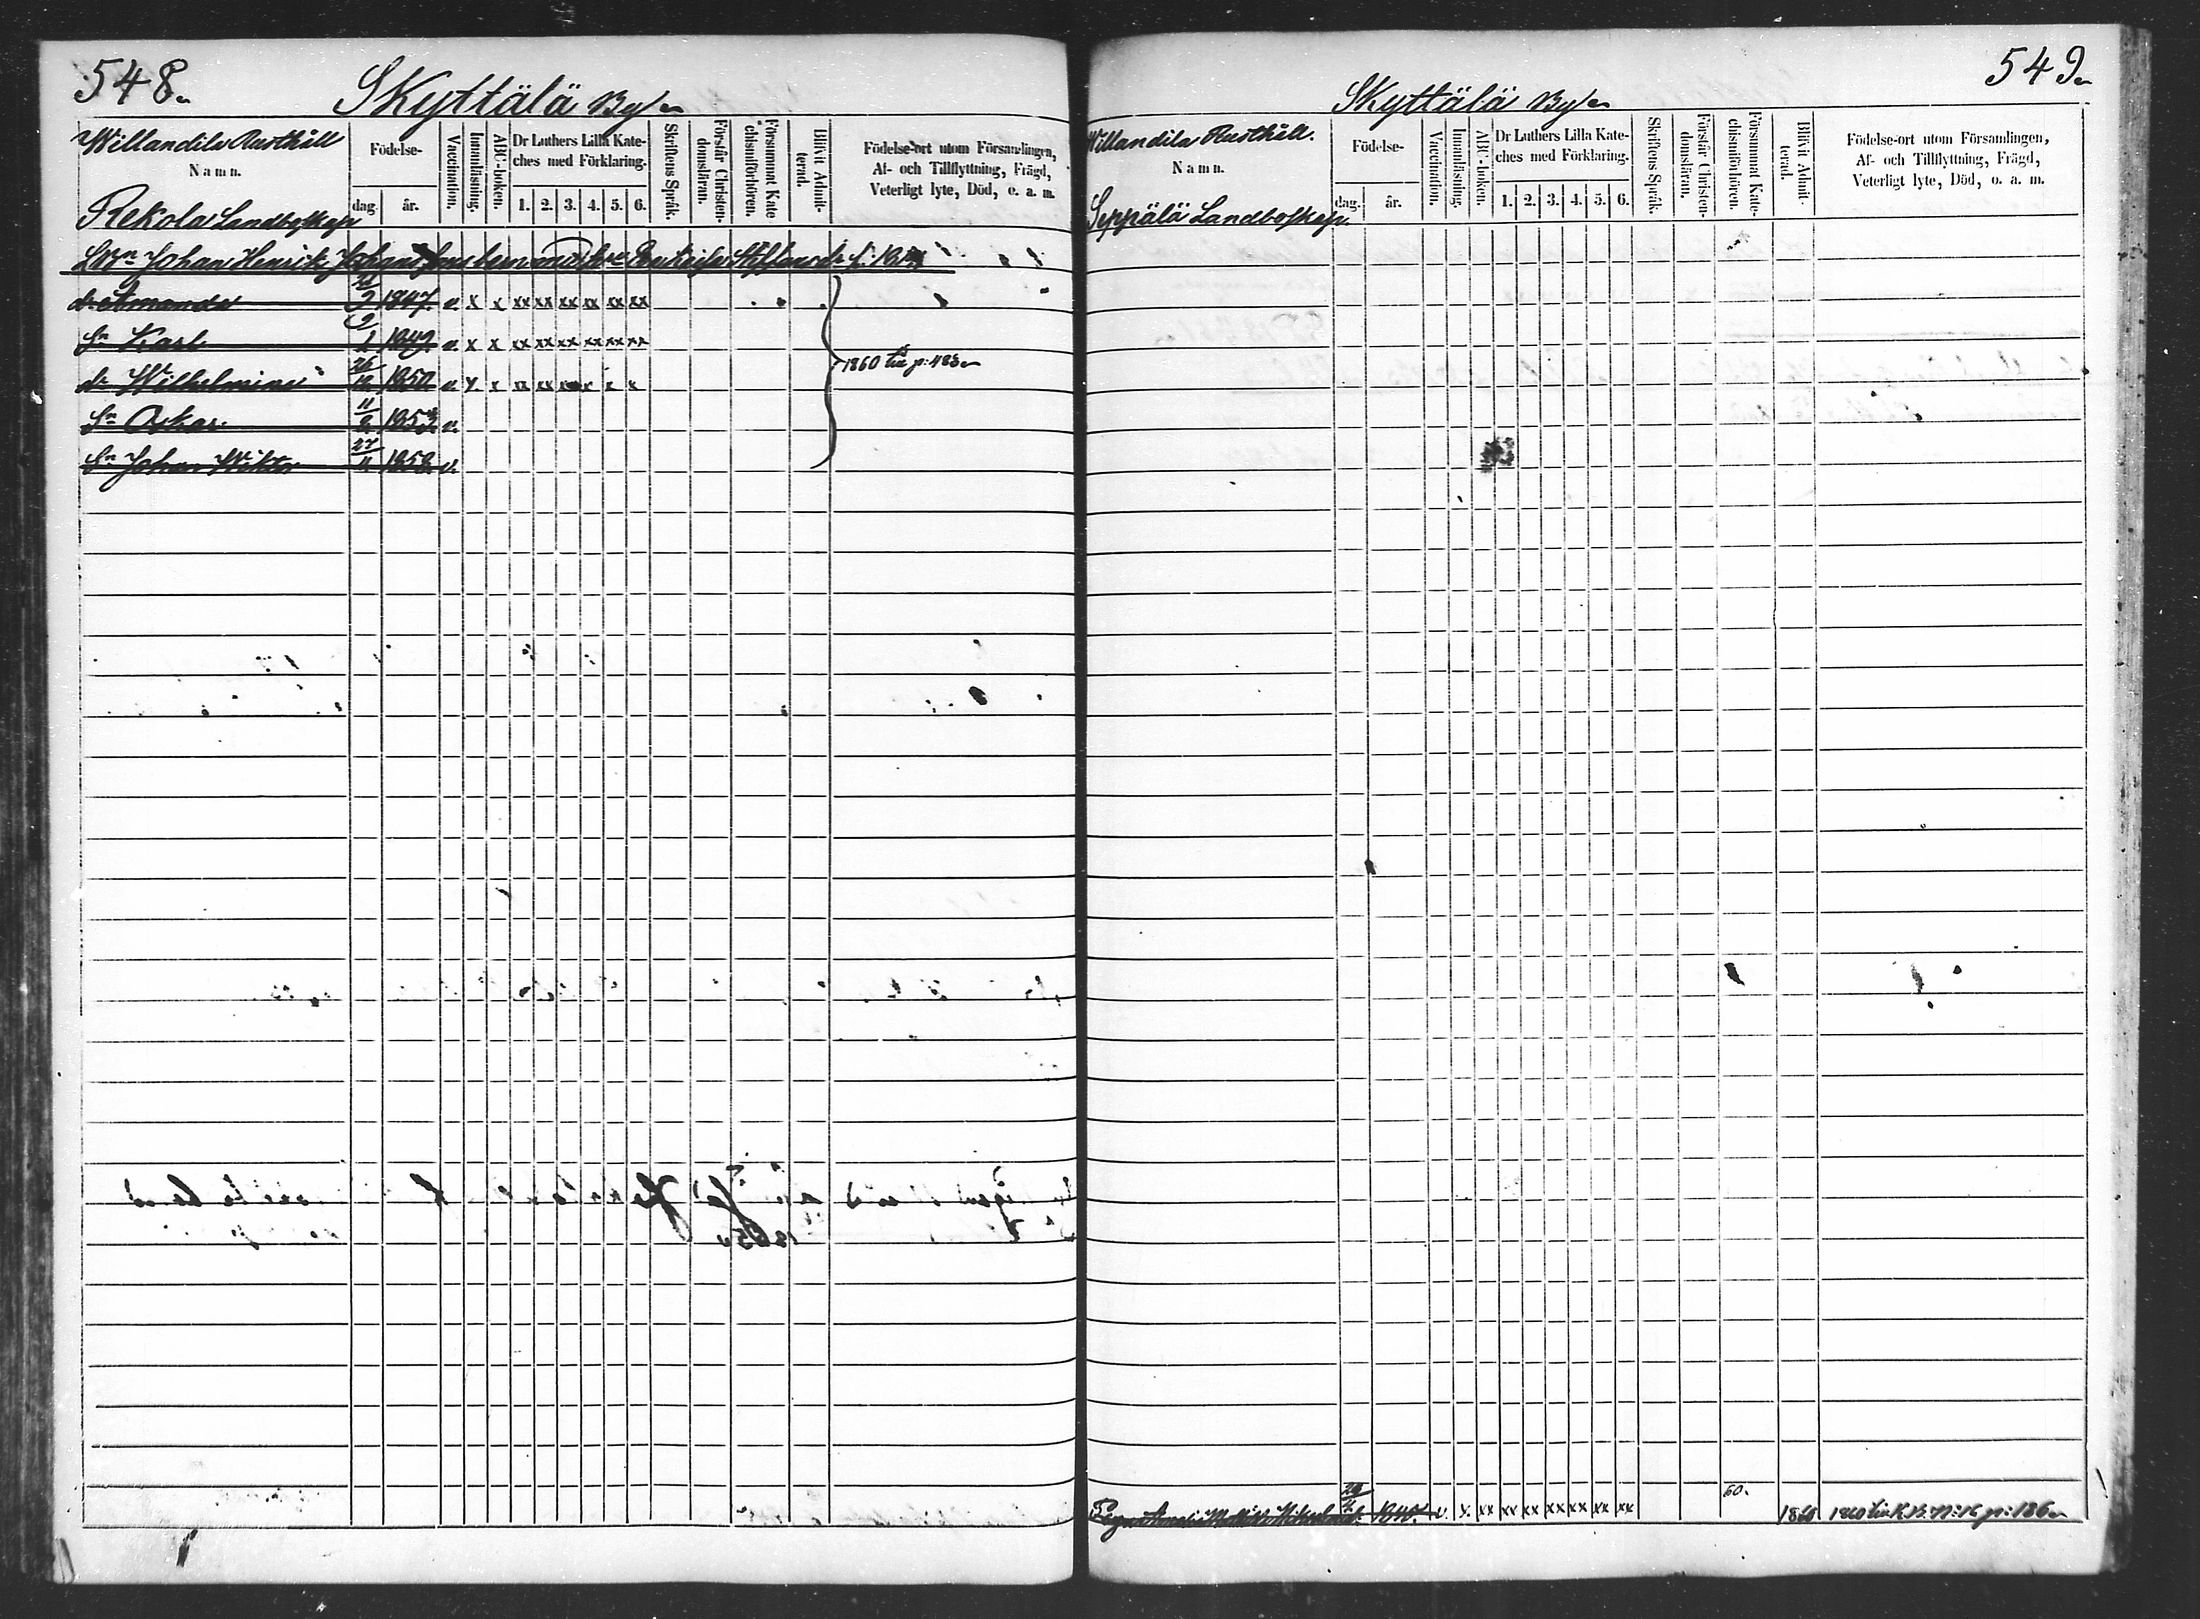 548.
Skyttälä By
Willandila Rusthåll
Namn.
Födelse-
dag. år.
Vaccination.
Innanläsning.
ABC-boken.
Dr Luthers Lilla Kate-
ches med Förklaring.
1. 2. 3. 4. 5. 6.
Skriftens Språk.
Förstår Christen-
domsläran.
Försummat Kate-
chismiförhören.
Blifvit Admit-
terad.
Födelse-ort utom Församlingen,
Af- och Tillflyttning, Frägd,
Veterligt lyte, Död, o. a. m.
Rekola Landbolägen
Johan Henrik
dr Amanda 2 1847. v. x x xx xx xx xx xx xx
Sn Karl 2/1 1849. v. x x xx xx xx xx xx xx
dr Wilhelmina 26/12 1850 v. x. x xx xx x x x
Sn Oskar 11/2 1853. v.
Sn Johan Wiktor 27/11 1858. v.
1860 till p: 483
549.
Skyttälä By
Willandila Rusthåll.
Namn.
Födelse-
dag. år.
Vaccination.
Innanläsning.
ABC-boken.
Dr Luthers Lilla Kate-
ches med Förklaring.
1. 2. 3. 4. 5. 6.
Skriftens Språk.
Förstår Christen-
domsläran.
Försummat Kate-
chismiförhören.
Blifvit Admit-
terad.
Födelse-ort utom Församlingen,
Af- och Tillflyttning, Frägd,
Veterligt lyte, Död, o. a. m.
Seppälä
v. x. xx xx xx xx xx xx xx 60. p: 136